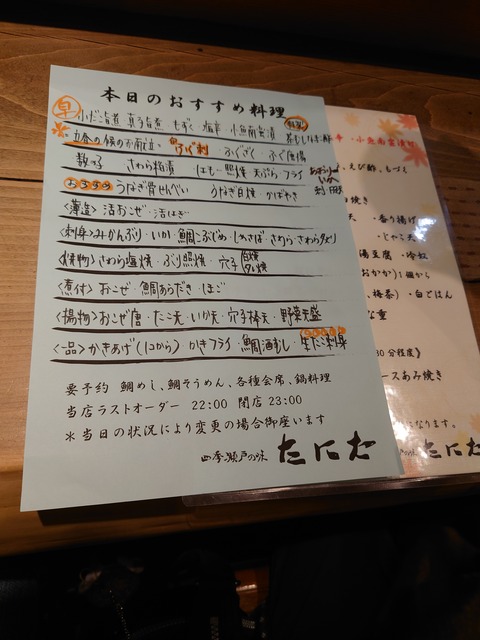 本日のおすすめ料理
早 小だこ旨煮 真子旨煮 もずく 塩辛 小魚南蛮漬
ふぐざく・ふぐ唐揚
さわら粕漬 はも 照焼 天ぷら フライ
おすすめ うなぎ骨せんべい うなぎ白焼・かばやき
<薄造>活おこぜ・活はぎ
<刺身>みかんぶり・いか・鯛
しめさば・さわら
<焼物>さわら塩焼・ぶり照焼・穴子
<煮付>おこぜ・鯛あらだき・ほご
<揚物>おこぜ唐・たこ天・いか天・穴子棒天・野菜天盛
<一品>かきあげ(1コから) かきフライ・鯛酒むし・生だこ刺身
要予約 鯛めし、鯛そうめん、各種会席、鍋料理
当店ラストオーダー 22:00 閉店 23:00
*当日の状況により変更の場合御座います
四季瀬戸の味 たにた
・小魚南蛮漬け
えび酢、もづく
焼き
・香り揚げ
・じゃこ天
湯豆腐 ・冷奴
おかか)1個から
、梅茶)・白ごはん
な重
30分程度)
ースあみ焼き
になります。